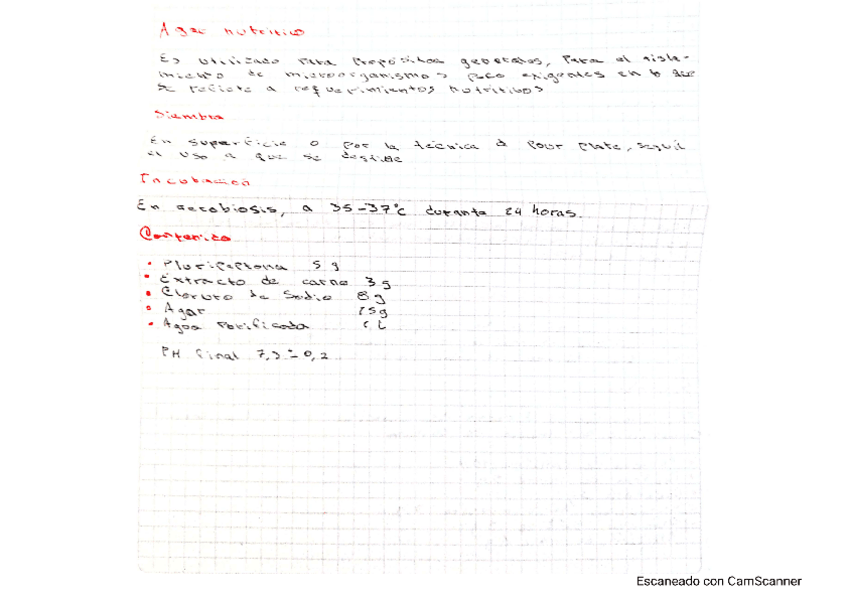 Agar nutritivo
Es utilizado para propósitos generales, para el aisla-
miento de microorganismos poco exigentes en lo que
se refiere a requerimientos nutritivos
Siembra
En superficie o por la técnica d Pour plate, según
el uso a que se destine
Incubación
En aerobiosis, a 35-37°C durante 24 horas.
Contenido
• Pluripeptona 5 g
• Extracto de carne 3 g
• Cloruro de Sodio 8 g
• Agar 15g
• Agua Purificada 1 L
PH final 7,3 ± 0,2
Escaneado con CamScanner